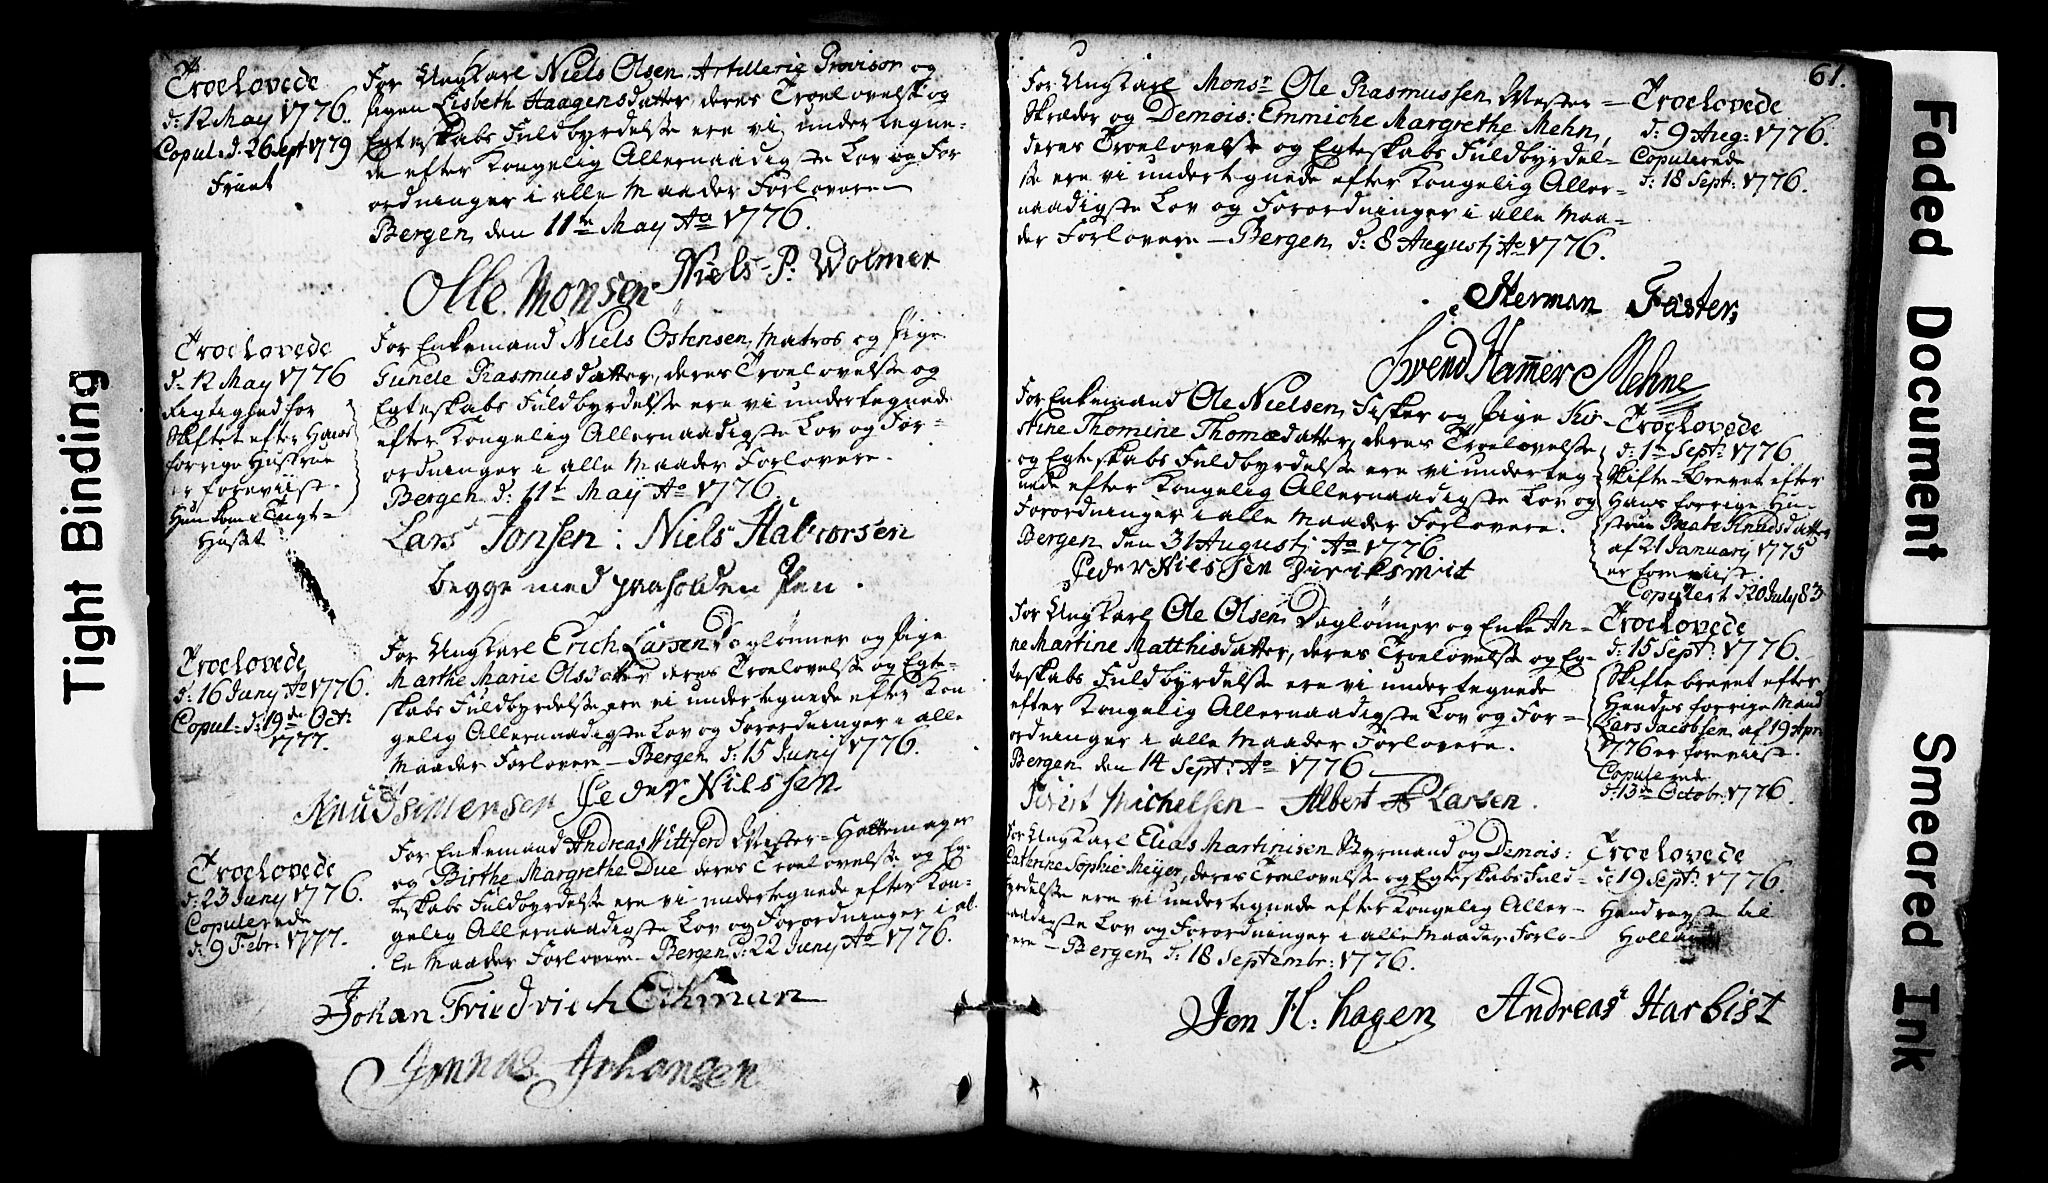 Troelovede
d: 12 May 1776.
Copul: d. 26 Sept 1779
For Ung Karl Niels Olsen, Artillerie Provisor og
Pigen Lisbeth Haagensdatter, deres Troelovelse og
Egteskabs Fuldbyrdelse ere vi undertegne-
de efter Kongelig Allernaadigste Lov og For
ordninger i alle Maader Forlovere
Bergen den 11te May Ao 1776.
Olle Monsen Niels P: Wolmer
Troelovede
d: 12 May 1776
Rigtighed for
Skiftet efter Hans
forrige Hustrue
er foreviist.
Hun kom i Tugt-
Huset
For Enkemand Niels Östensen, Matros og Pige
Gunele Rasmusdatter, deres Troelovelse og
Egteskabs Fuldbyrdelse ere vi undertegnede
efter Kongelig Allernaadigste Lov og For-
ordninger i alle Maader Forlovere.
Bergen d: 11te Maÿ Ao 1776.
Lars Jonsen : Niels Halvorsen
begge med paaholden Pen.
Troelovede
d: 16 Juny Ao 1776.
Copul: d: 19de Oct:
1777.
For Ung Karl Erich Larsen Daglönner og Pige
Marthe Marie Olsdatter deres Troelovelse og Egte-
skabs Fuldbyrdelse ere vi undertegnede efter Kon-
gelig Allernaadigste Lov og Forordninger i alle
Maader Forlovere - Bergen d: 15 Junij 1776.
Knud Simensen Peder Nielssen
Troelovede
d: 23 Juny 1776.
Copulerede
d: 9 Febr: 1777.
For Enkemand Andreas Wittferd Mester-Hattemager
og Birthe Margrethe Due deres Troelovelse og Eg-
teskabs Fuldbyrdelse ere vi undertegnede efter Kon-
gelig Allernaadigste Lov og Forordninger i al-
le Maader Forlovere - Bergen d: 22 Juny Ao 1776.
Johan Friedrich Eckman
Jonnas Johansen
61.
For Ung Karl Monsr Ole Rasmussen Mester-
Skræder og Demois: Emmiche Margrethe Mehn,
deres Troelovelse og Egteskabs Fuldbyrdel-
se ere vi undertegnede efter Kongelig Aller-
naadigste Lov og Forordninger i alle Maa-
der Forlovere - Bergen d: 8 Augustj Ao 1776.
Troelovede
d: 9 Aug: 1776.
Copulerede
d: 18 Sept: 1776.
Herman Faster
Svend Hammer Mehne
For Enkemand Ole Nielsen, Fisker og Pige Kir-
stine Thomine Thomædatter, deres Troelovelse
og Egteskabs Fuldbyrdelse ere vi underteg-
nede efter Kongelig Allernaadigste Lov og
Forordninger i alle Maader Forlovere.
Bergen den 31 Augustj Ao 1776.
Peder Nielssen Diriksmit
Troelovede
d: 1te Sept: 1776
Skifte-Brevet efter
Hans forrige Hu-
strue Beate Knudsdatter
af 21 January 1775
er foreviist.
Copulert d 20 July 83
For Ung Karl Ole Olsen Daglönner og Enke An-
ne Martine Matthisdatter, deres Troelovelse og Eg-
teskabs Fuldbyrdelse ere vi undertegnede
efter Kongelig Allernaadigste Lov og For-
ordninger i alle Maader Forlovere.
Bergen den 14 Sept: Ao 1776
Michelsen - Albert Larsen.
Troelovede
d: 15 Sept: 1776.
Skiftebrevet efter
Hendes forrige Mand
Lars Jacobsen af 19 Apr:
1776 er foreviist.
Copulerede
d: 13de Octobr: 1776.
For Ung Karl Elias Martinisen Styrmand og Demois:
Catherine Sophie Meÿer, deres Troelovelse og Egteskabs Fuld-
byrdelse ere vi undertegnede efter Kongelig Aller-
naadigste Lov og Forordninger i alle Maader Forlo-
vere - Bergen d: 18 Septembr: 1776.
Troelovede
d: 19 Sept: 1776.
Hand reyste til
Holland
Jen H: hagen Andreas Harbist
Tight Binding
Faded Document
Smeared Ink